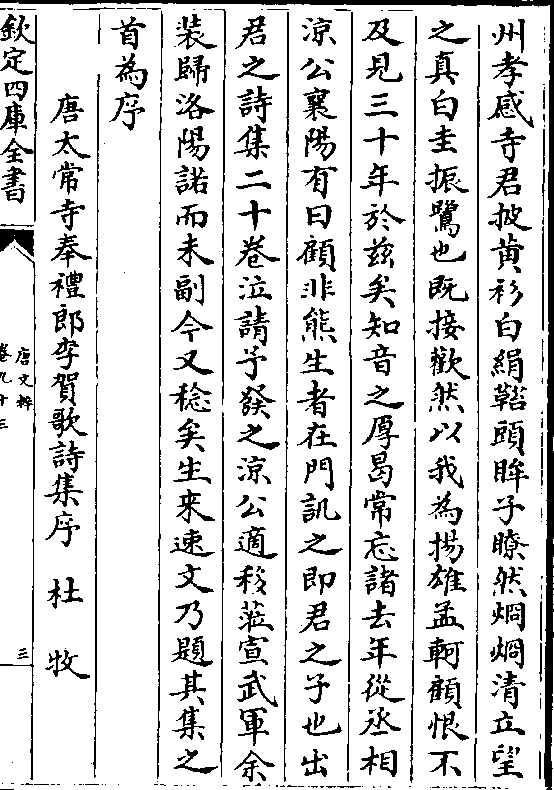 州孝感寺君披黄衫白絹鞳頭眸子瞭然炯炯清立望
之真白圭振鷺也既接歡然以我為揚雄孟軻顧恨不
及見三十年於兹矣知音之厚曷常忘諸去年從丞相
凉公襄陽有曰顧非熊生者在門訊之即君之子也出
君之詩集二十卷泣請予發之凉公適移蒞宣武軍余
装歸洛陽諾而未副今又稔矣生來速文乃題其集之
首為序
唐太常寺奉禮郎李賀歌詩集序 杜牧
欽定四庫全書
唐文粹
卷九十三
三